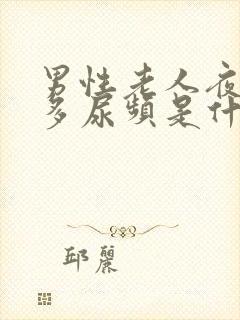 男性老人夜
多尿頻是什
邱麗